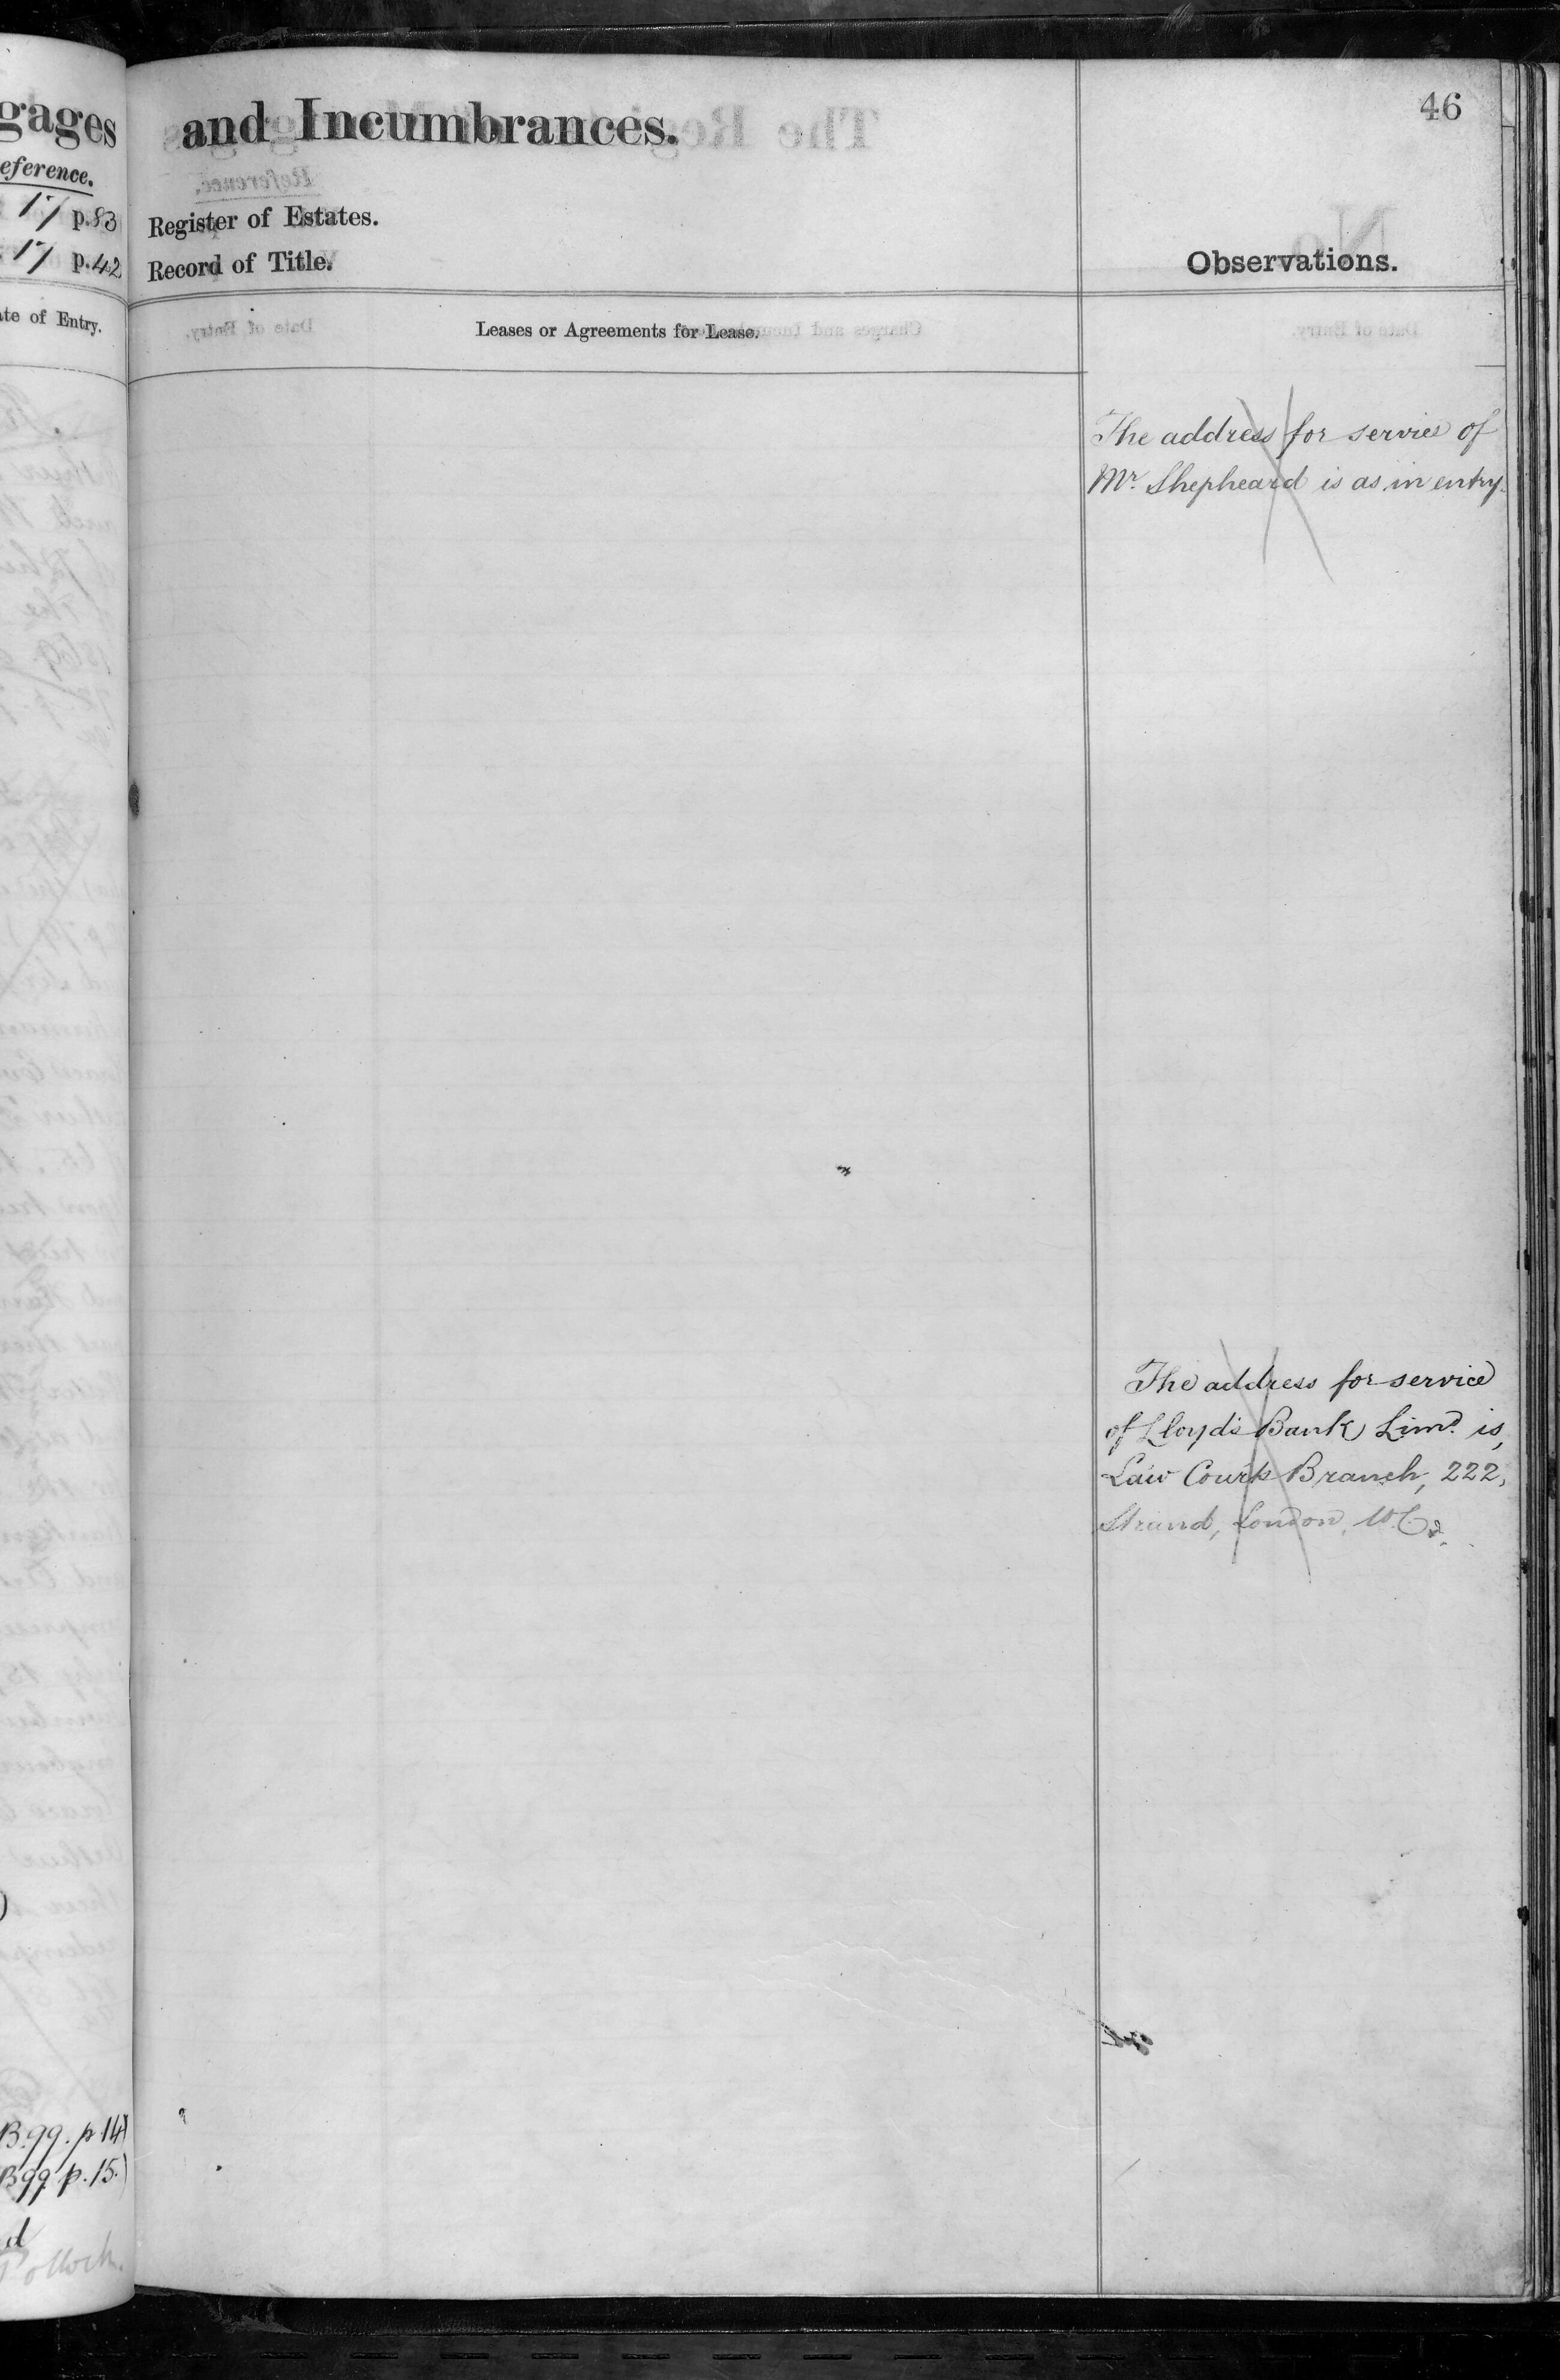 gages
eference.
17 p.83
17 p.42
ate of Entry.
B.99. p 14)
B99 p.15.)
d
Pollock.
46
and Incumbrances.
Register of Estates.
Record of Title.
Observations.
Leases or Agreements for Lease.
The address for service of
Mr. Shepheard is as in entry.
The address for service
of Lloyds Bank Limd. is,
Law Courts Branch, 222,
Strand, London, W.C.2.